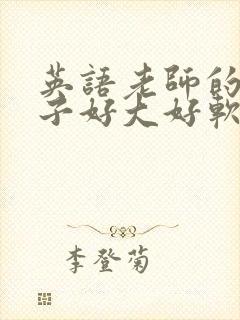 英語老師的
子好大好軟
李登菊